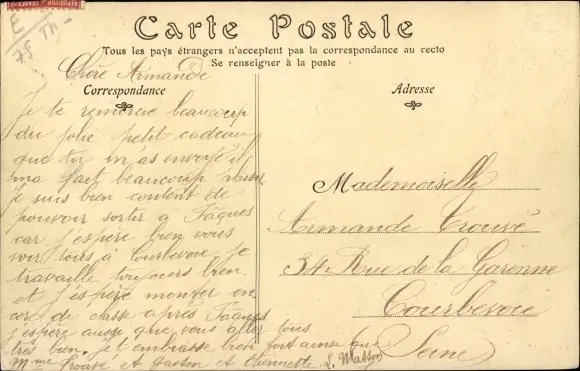 RÉPUBLIQUE FRANÇAISE
E
75 Th.
Carte Postale
Tous les pays étrangers n'acceptent pas la correspondance au recto
Se renseigner à la poste
Correspondance
Adresse
Chère Armande
Je te remercie beaucoup
du jolie petit cadeau
que tu m'as envoyé il
ma fait beaucoup
Je suis bien content de
pouvoir sortir à Pâques
car j'espère bien vous
voir tous à Courbevoie je
travaille toujours bien
et j'espère monter en
core de classe après Pâques
j'espère aussi que vous aller tous
très bien. Je t'embrasse bien fort ainsi que
Mme Trouvé et Gaston et Etiennette L. Masson
Mademoiselle
Armande Trouvé
34 Rue de la Garenne
Courbevoie
Seine